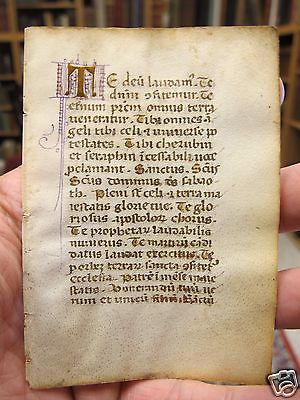 Te deũ laudam⁹. Te
dnũm ɔfitemur. Te
eternum prẽm omnis terra
veneratur. Tibi omnes ã
geli tibi celi & universe p
testates. Tibi cherubin
et seraphin ĩcessabili voce
ꝓclamant. Sanctus. Scũs
Scũs dominus ds saba
oth. Pleni st celi & terra ma
iestatis glorie tue. Te glo
riosus apostolor chorus.
Te prophetar laudabilis
numerus. Te martirũ cãdi
datus laudat exercitus. Te
per orbẽ terrar sancta ɔfitet
ecclesia. Patrẽ ĩmẽse maie
statis. Venerandũ tuũ ve
rum et unicũ filiũ. Sanctũ